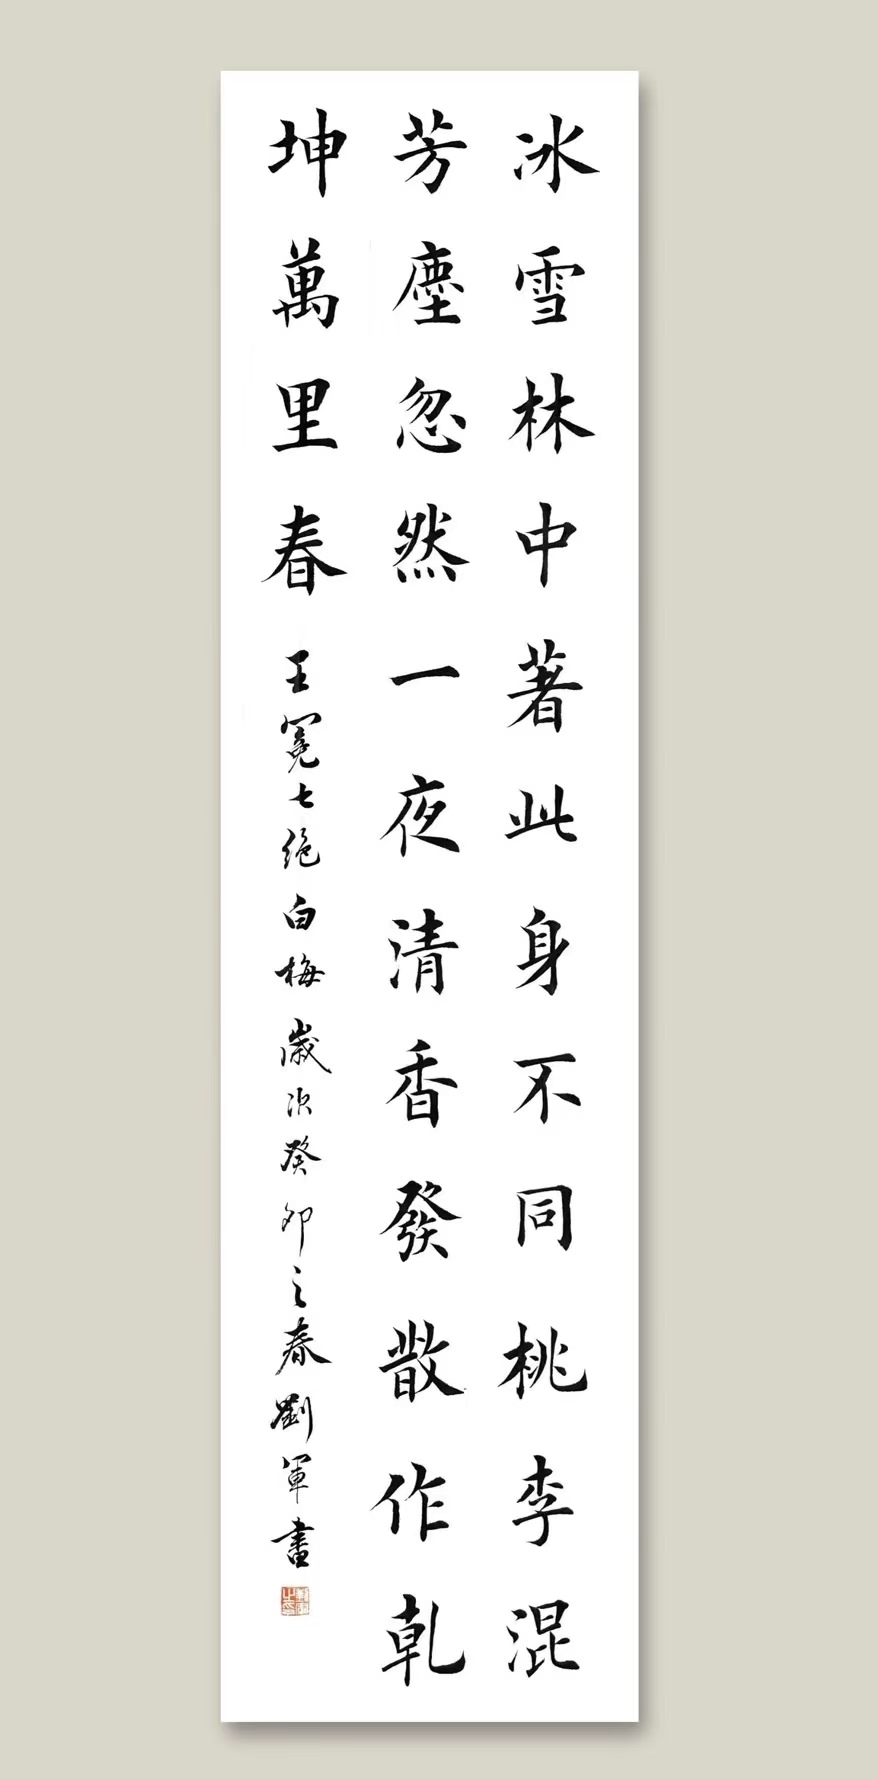 冰雪林中著此身不同桃李混
芳塵忽然一夜清香發散作乾
坤萬里春
王冕七絕白梅歲次癸卯之春劉軍書